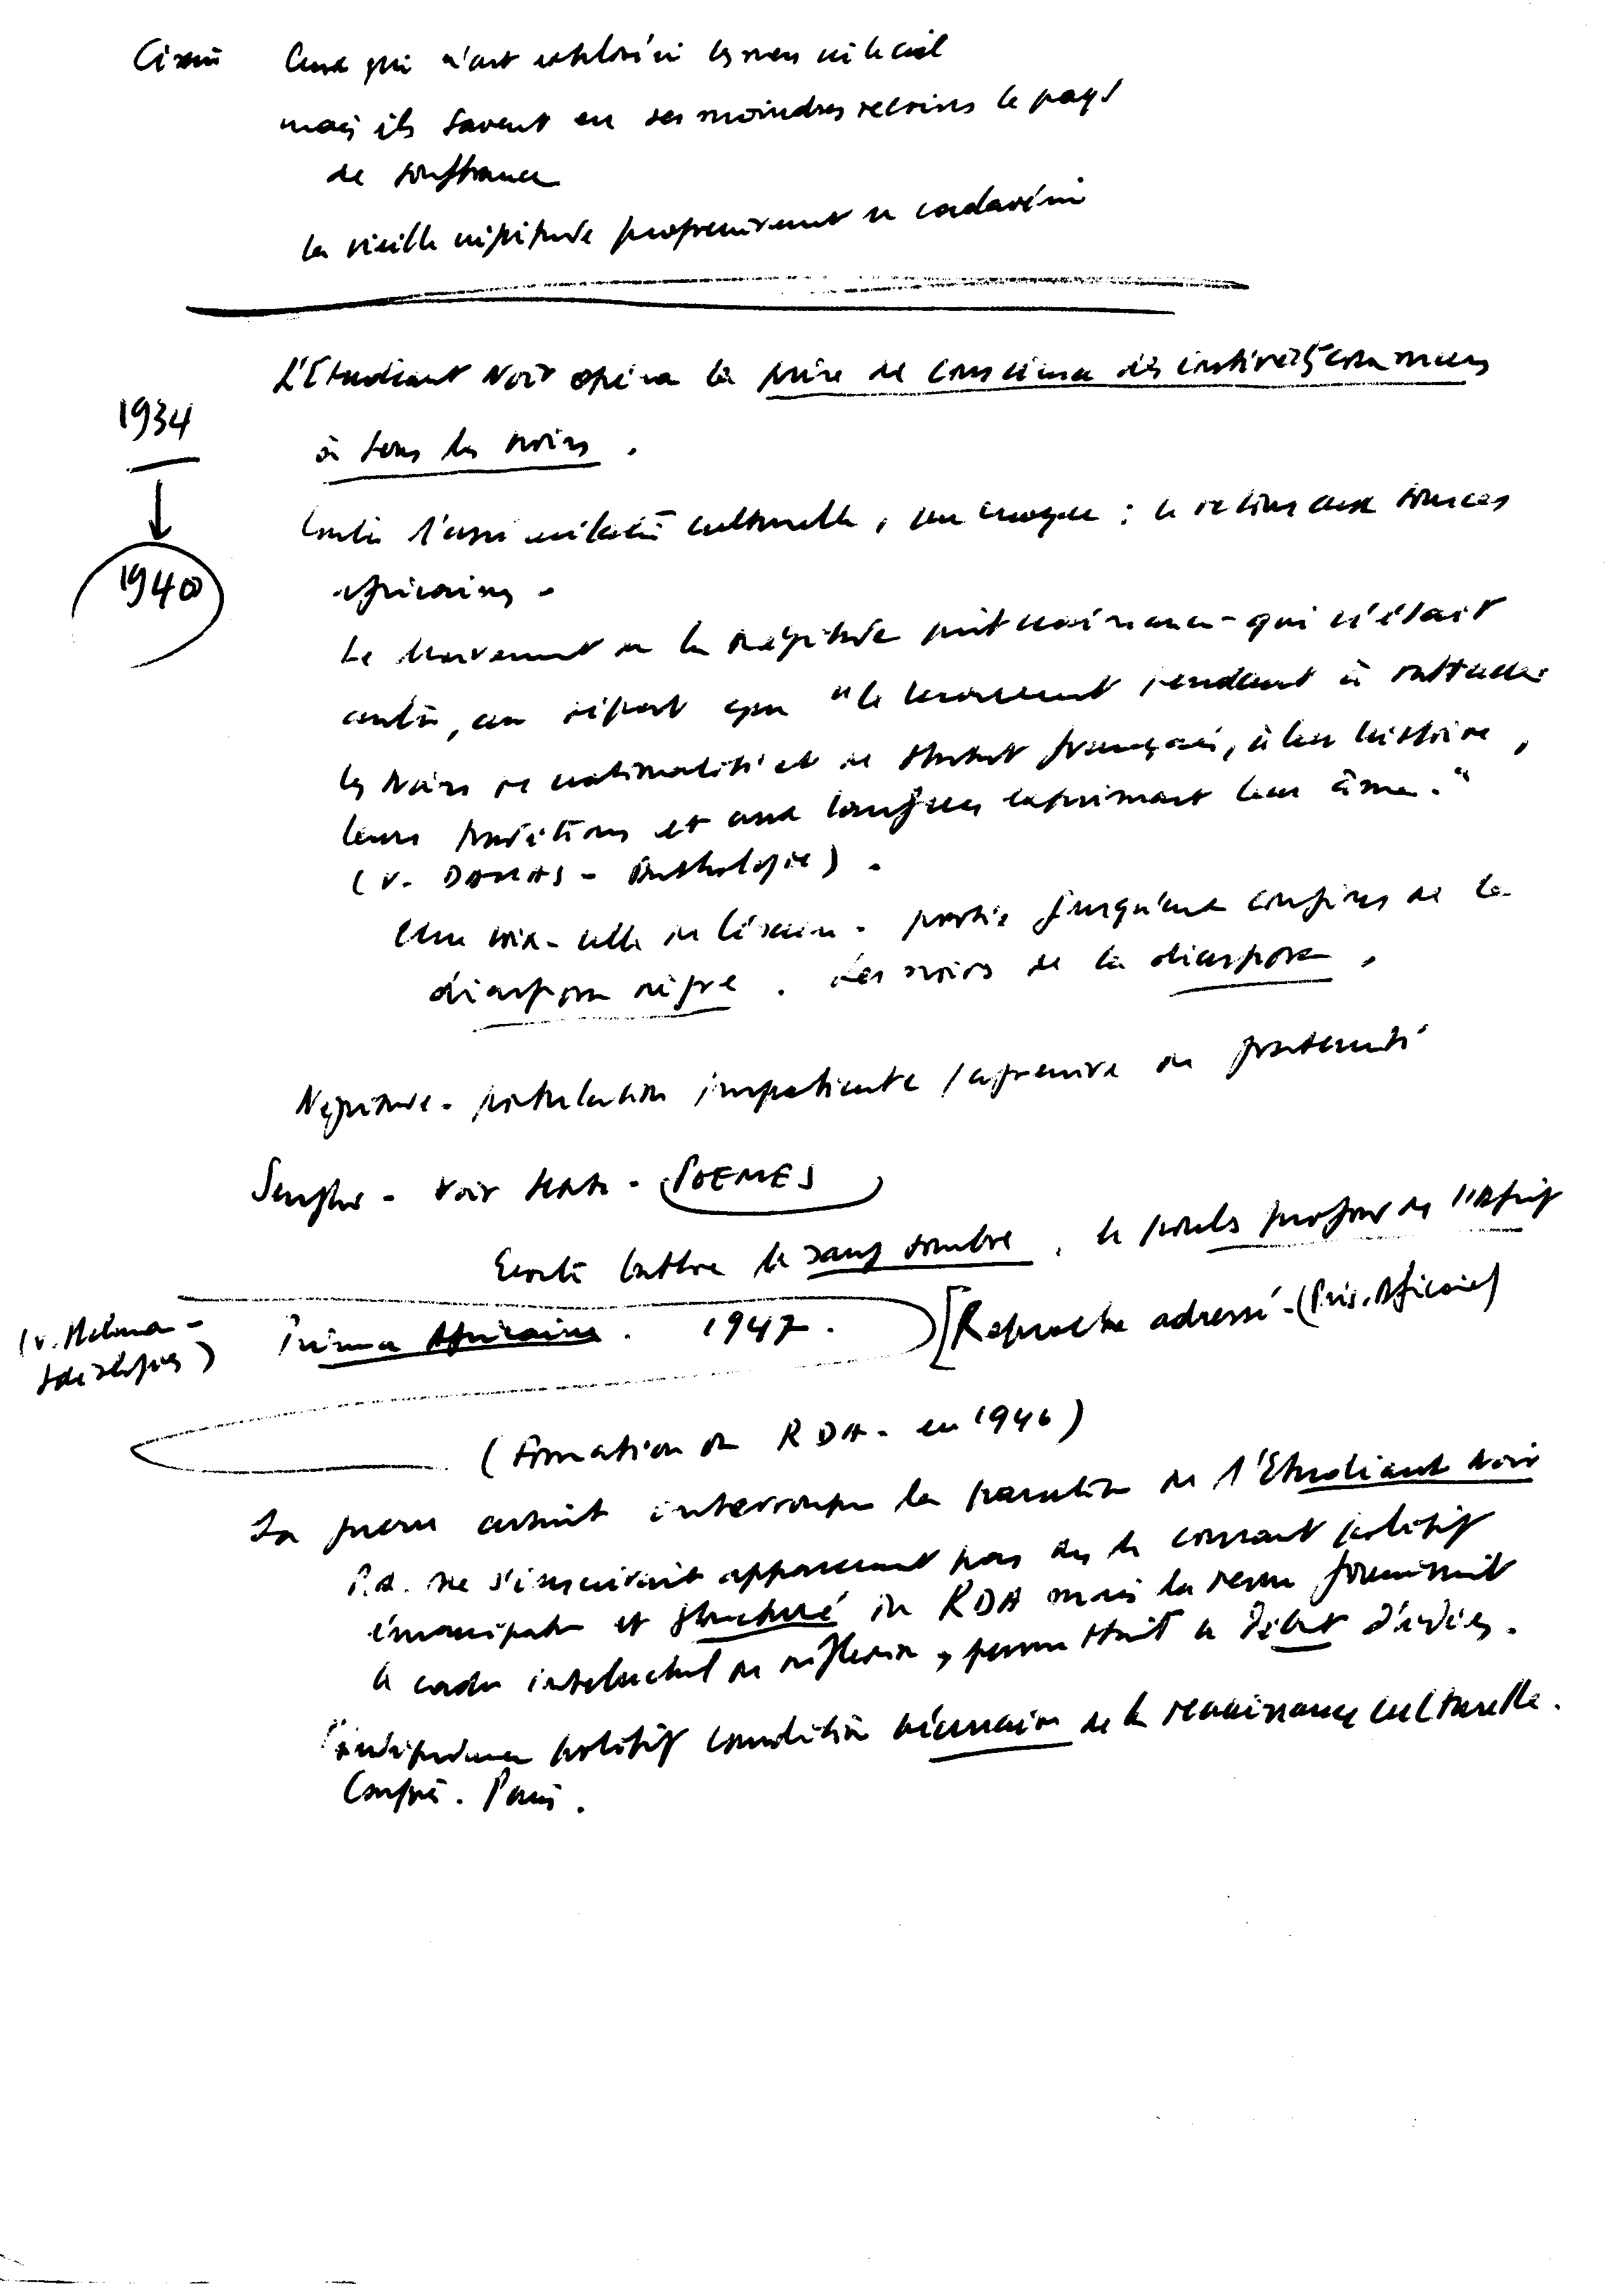 Césaire Ceux qui n'ont exploré ni les mers ni le ciel
mais ils savent en ses moindres recoins le pays
de souffrance
la vieille négritude progressivement se cadavérise
L'Etudiant Noir opéra la prise de conscience des intérêts communs
1934
à tous les noirs.
Contre l'assimilation culturelle, un moyen : le retour aux sources
1940
africaines -
Le mouvement de la négritude prit naissance - qui n'était
autre, au départ que "le mouvement tendant à rattacher
les Noirs de nationalité et de statut français, à leur histoire,
leurs traditions et aux langues exprimant leur âme."
(v. DAMAS - Anthologie).
Une voix - celle de Césaire - portée jusqu'aux confins de la
diaspora nègre. Les noirs de la diaspora.
Négritude - postulation impatiente / de fraternité
Senghor - voir texte - POEMES
Ecoute battre le sang sombre, le pouls profond de l'Afrique
(v. -
Idéologies) Présence Africaine. 1947. [Reproche adressé - (Prés. Africaine)
(Formation du RDA - en 1946)
La guerre avait interrompu la parution de l'Etudiant Noir
P.A. ne s'inscrivait apparemment pas dans le courant politique
émancipateur et structuré du RDA mais la revue fournissait
le cadre intellectuel de réflexion, permettait le débat d'idées.
l'indépendance politique condition nécessaire de la renaissance culturelle.
Congrès. Paris.